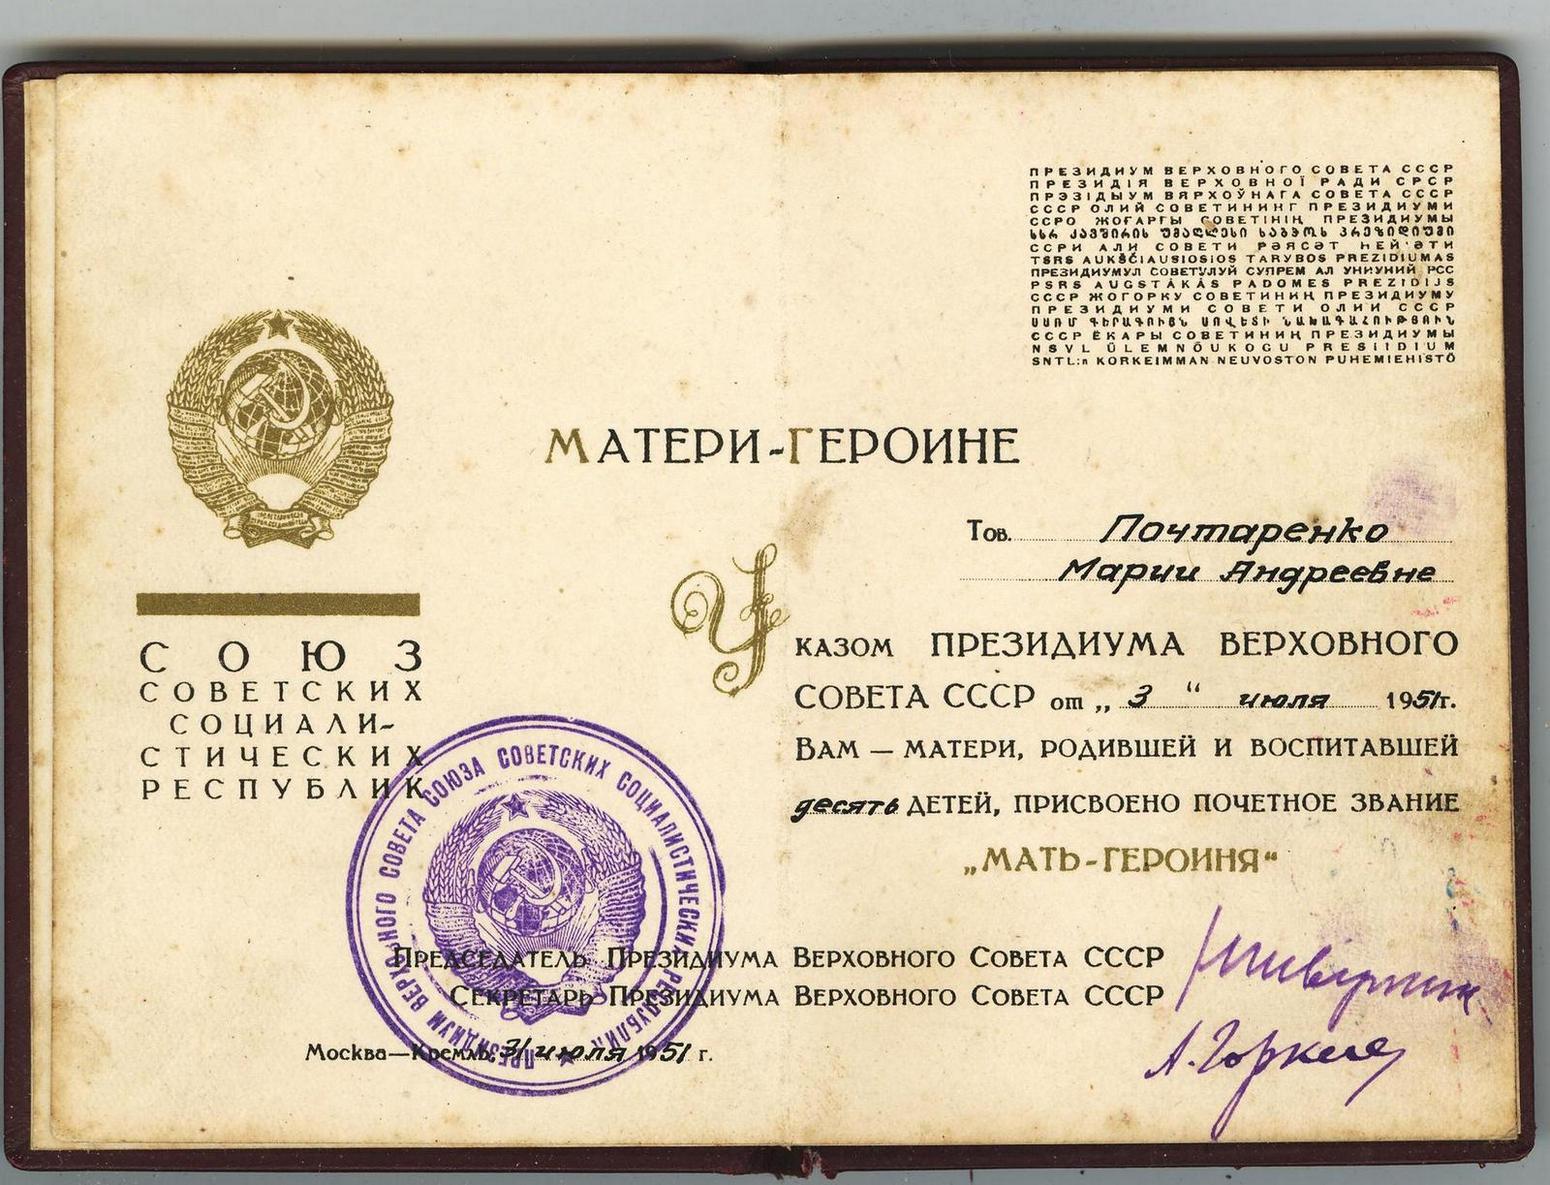 СОЮЗ
СОВЕТСКИХ
СОЦИАЛИ-
СТИЧЕСКИХ
РЕСПУБЛИК
ПРЕЗИДИУМ ВЕРХОВНОГО СОВЕТА СССР
ПРЕЗИДІЯ ВЕРХОВНОЇ РАДИ СРСР
ПРЭЗІДЫУМ ВЯРХОЎНАГА СОВЕТА СССР
СССР ОЛИЙ СОВЕТИНИНГ ПРЕЗИДИУМИ
ССРО ЖОҒАРҒЫ СОВЕТІНІҢ ПРЕЗИДИУМЫ
ССРИ АЛИ СОВЕТИ РӘЯСӘТ ҺЕЙ'ӘТИ
TSRS AUKŠČIAUSIOSIOS TARYBOS PREZIDIUMAS
ПРЕЗИДИУМУЛ СОВЕТУЛУЙ СУПРЕМ АЛ УНИУНИЙ РСС
PSRS AUGSTĀKĀS PADOMES PREZIDIJS
СССР ЖОГОРКУ СОВЕТИНИҢ ПРЕЗИДИУМУ
ПРЕЗИДИУМИ СОВЕТИ ОЛИИ СССР
СССР ЁКАРЫ СОВЕТИНИҢ ПРЕЗИДИУМЫ
NSVL ÜLEMNÕUKOGU PRESIIDIUM
SNTL:n KORKEIMMAN NEUVOSTON PUHEMIEHISTÖ
МАТЕРИ-ГЕРОИНЕ
Тов. Почтаренко
Марии Андреевне
УКАЗОМ ПРЕЗИДИУМА ВЕРХОВНОГО
СОВЕТА СССР от „ 3 “ июля 1951г.
ВАМ — МАТЕРИ, РОДИВШЕЙ И ВОСПИТАВШЕЙ
десять ДЕТЕЙ, ПРИСВОЕНО ПОЧЕТНОЕ ЗВАНИЕ
„МАТЬ-ГЕРОИНЯ“
ПРЕДСЕДАТЕЛЬ ПРЕЗИДИУМА ВЕРХОВНОГО СОВЕТА СССР
СЕКРЕТАРЬ ПРЕЗИДИУМА ВЕРХОВНОГО СОВЕТА СССР
А. Горкин
Москва—Кремль, 31 июля 1951 г.
ПРЕЗИДИУМ ВЕРХОВНОГО СОВЕТА СОЮЗА СОВЕТСКИХ СОЦИАЛИСТИЧЕСКИХ РЕСПУБЛИК